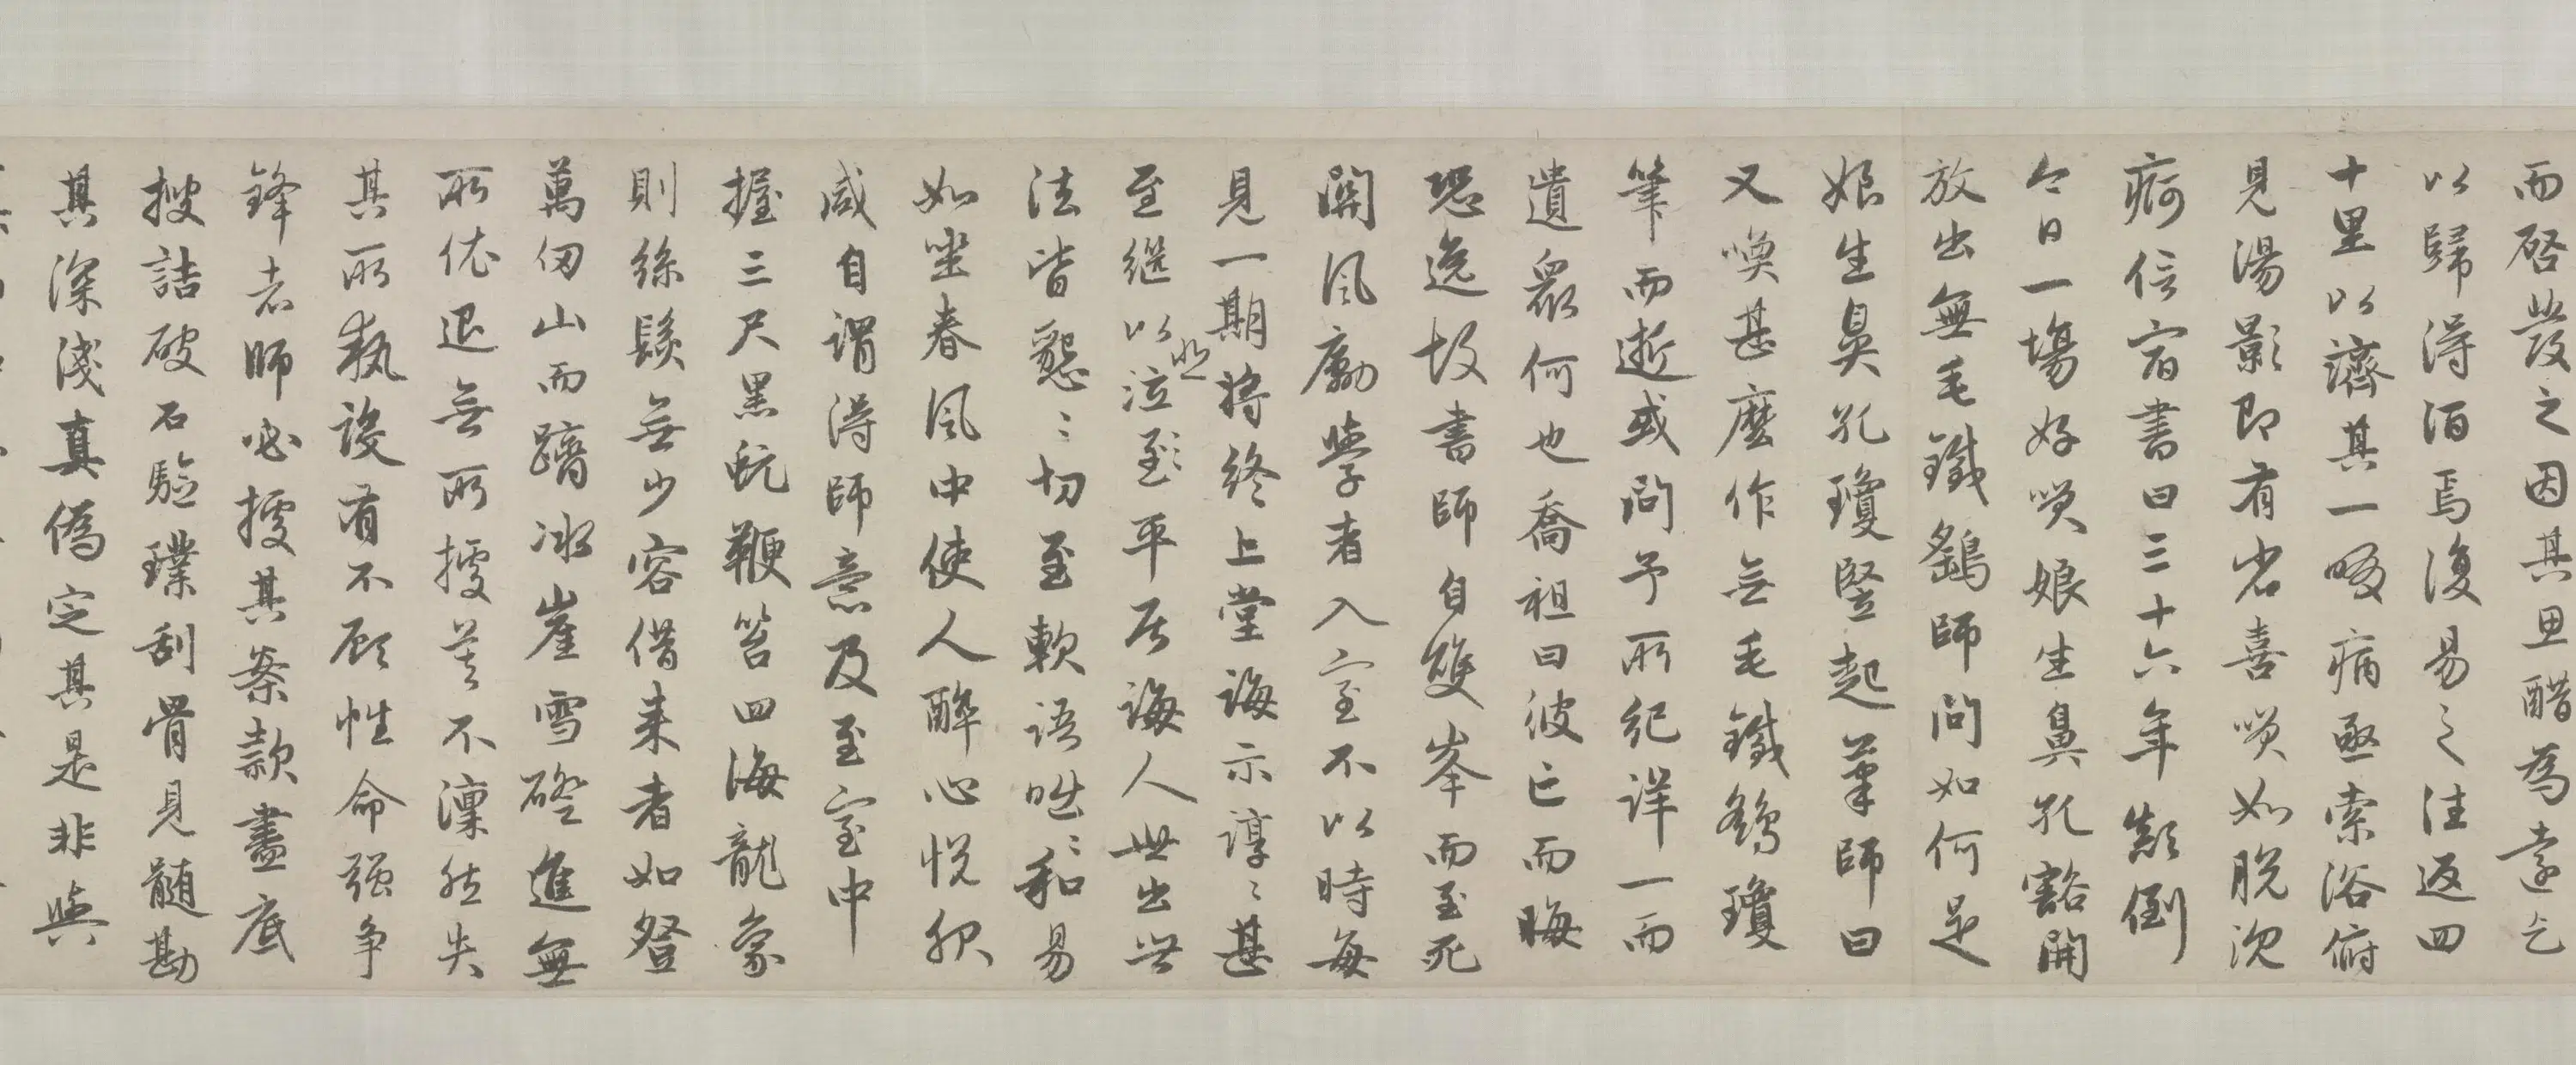 而啓發之因其思醋為遠乞
以歸得酒焉復易之往返四
十里以濟其一啜病亟索浴俯
見湯影即有省喜哭如脫沉
痾信宿書曰三十六年顛倒
今日一場好笑娘生鼻孔豁開
放出無毛鐵鷂師問如何是
娘生鼻孔瓊豎起筆師曰
又喚甚麼作無毛鐵鷂瓊
筆而逝或問予所紀詳一而
遺眾何也喬祖曰彼亡而晦
恐逸故書師自雙峯而至死
關風勵學者入室不以時每
見一期將終上堂誨示諄〻甚
至繼以悲泣至〻平居誨人世出世
法皆懇〻切至軟語咄〻和易
如坐春風中使人醉心悅服
咸自謂得師意及至室中
握三尺黑蚖鞭笞四海龍象
則絲髮無少容借來者如登
萬仞山而躋冰崖雪磴進無
所依退無所據莫不凜然失
其所執設有不顧性命強爭
鋒者師必據其案款盡底
搜詰破石驗璞刮骨見髓勘
其深淺真偽定其是非與